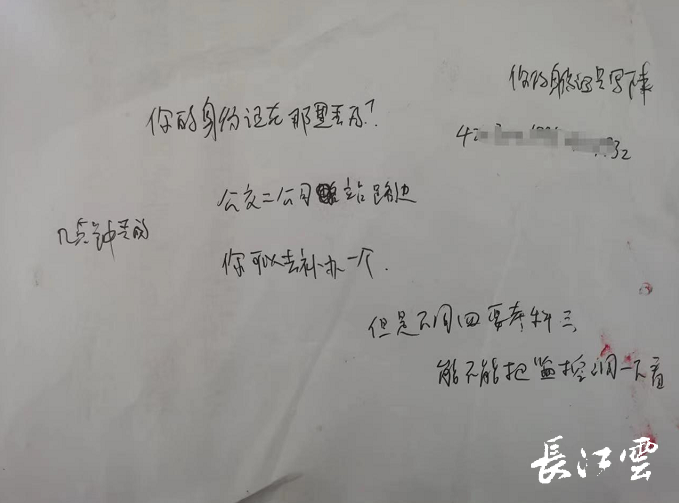 你的身份证号写下来
你的身份证在那里丢的?
42
32
公交二公司 站路边
几点钟丢的
你可以去补办一个.
但是下周四要考科三
能不能把监控调一下看
長江雲